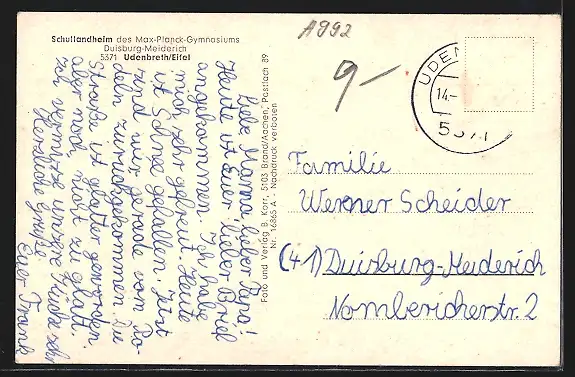 Schullandheim des Max-Planck-Gymnasiums
Duisburg-Meiderich
5371 Udenbreth/Eifel
A992
9,-
UDEN
14.-
5371
Liebe Mama! lieber Papa!
Heute ist Euer lieber Brief
angekommen. Ich habe
mich sehr gefreut. Heute
ist Schnee gefallen. Jetzt
sind wir gerade vom Ro-
deln zurückgekommen. Die
Straße ist glatter geworden
aber noch nicht zu glatt.
Ich vermisse unsere sehr
Herzliche Grüße
Euer Frank
Foto und Verlag B. Korr, 5103 Brand/Aachen, Postfach 89
Nr. 16865 A - Nachdruck verboten
Familie
Werner Scheider
(41) Duisburg-Meiderich
Nombericherstr. 2